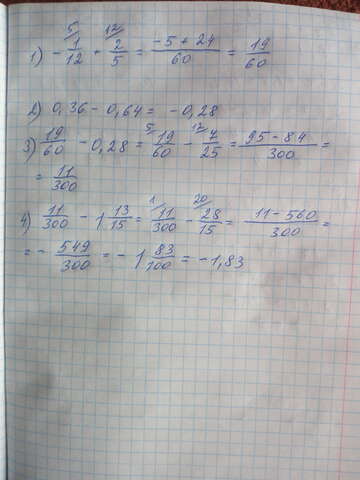 5/ 12/
1) - 1/12 + 2/5 = (-5 + 24)/60 = 19/60
2) 0,36 - 0,64 = -0,28
3) 19/60 - 0,28 = 5/ 19/60 - 12/ 7/25 = (95 - 84)/300 =
= 11/300
4) 11/300 - 1 13/15 = 1/ 11/300 - 20/ 28/15 = (11 - 560)/300 =
= - 549/300 = - 1 83/100 = -1,83